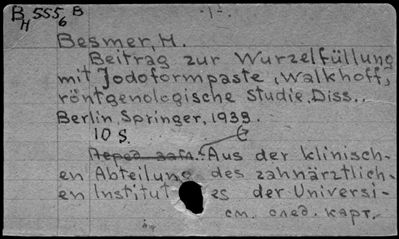 BH 5556 B -1-
Besmer, H.
Beitrag zur Wurzelfüllung
mit Jodoformpaste, Walkhoff,
röntgenologische Studie, Diss..
Berlin, Springer, 1933.
10 S.
Перед загл.: Aus der klinisch-
en Abteilung des zahnärztlich-
en Institutes der Universi-
см. след. карт.